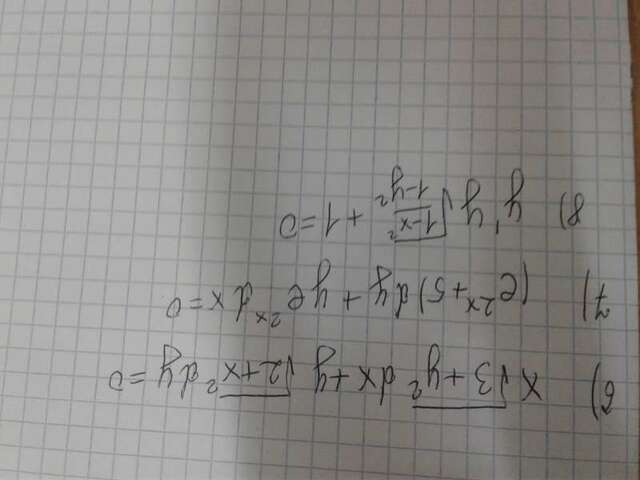 6) x√(3+y²) dx + y √(2+x²) dy = 0
7) (e^{2x}+5) dy + y e^{2x} dx = 0
8) y' y √((1-x²)/(1-y²)) + 1 = 0